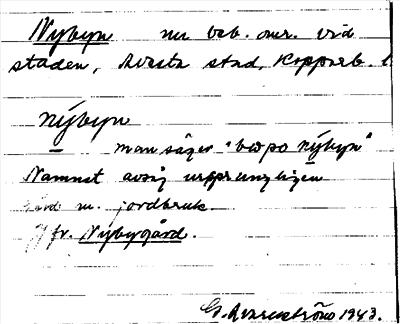 Nybyn nu beb. omr. vid
staden, Avesta stad, Kopparb. l
nýbyn
man säger "bo po nýbyn"
Namnet avsåg ursprungligen
gård m. jordbruk.
Jfr. Nybygård.
1943.